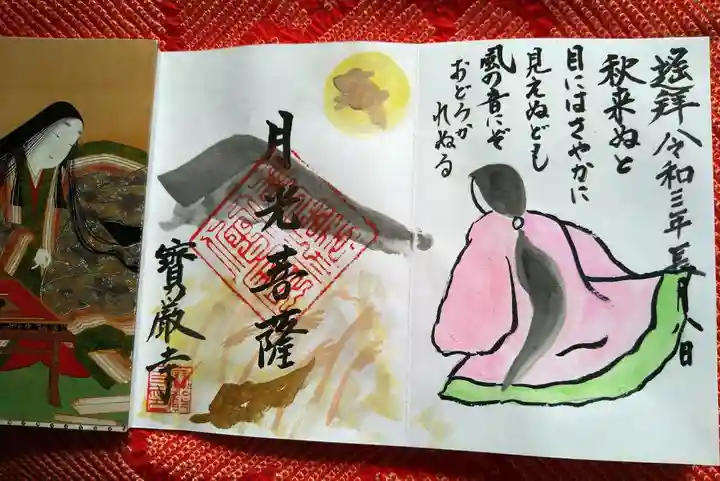 拝 令和三年 月八日
秋来ぬと
目にはさやかに
見えぬども
風の音にぞ
おどろか
れぬる
月光菩薩
寶厳寺